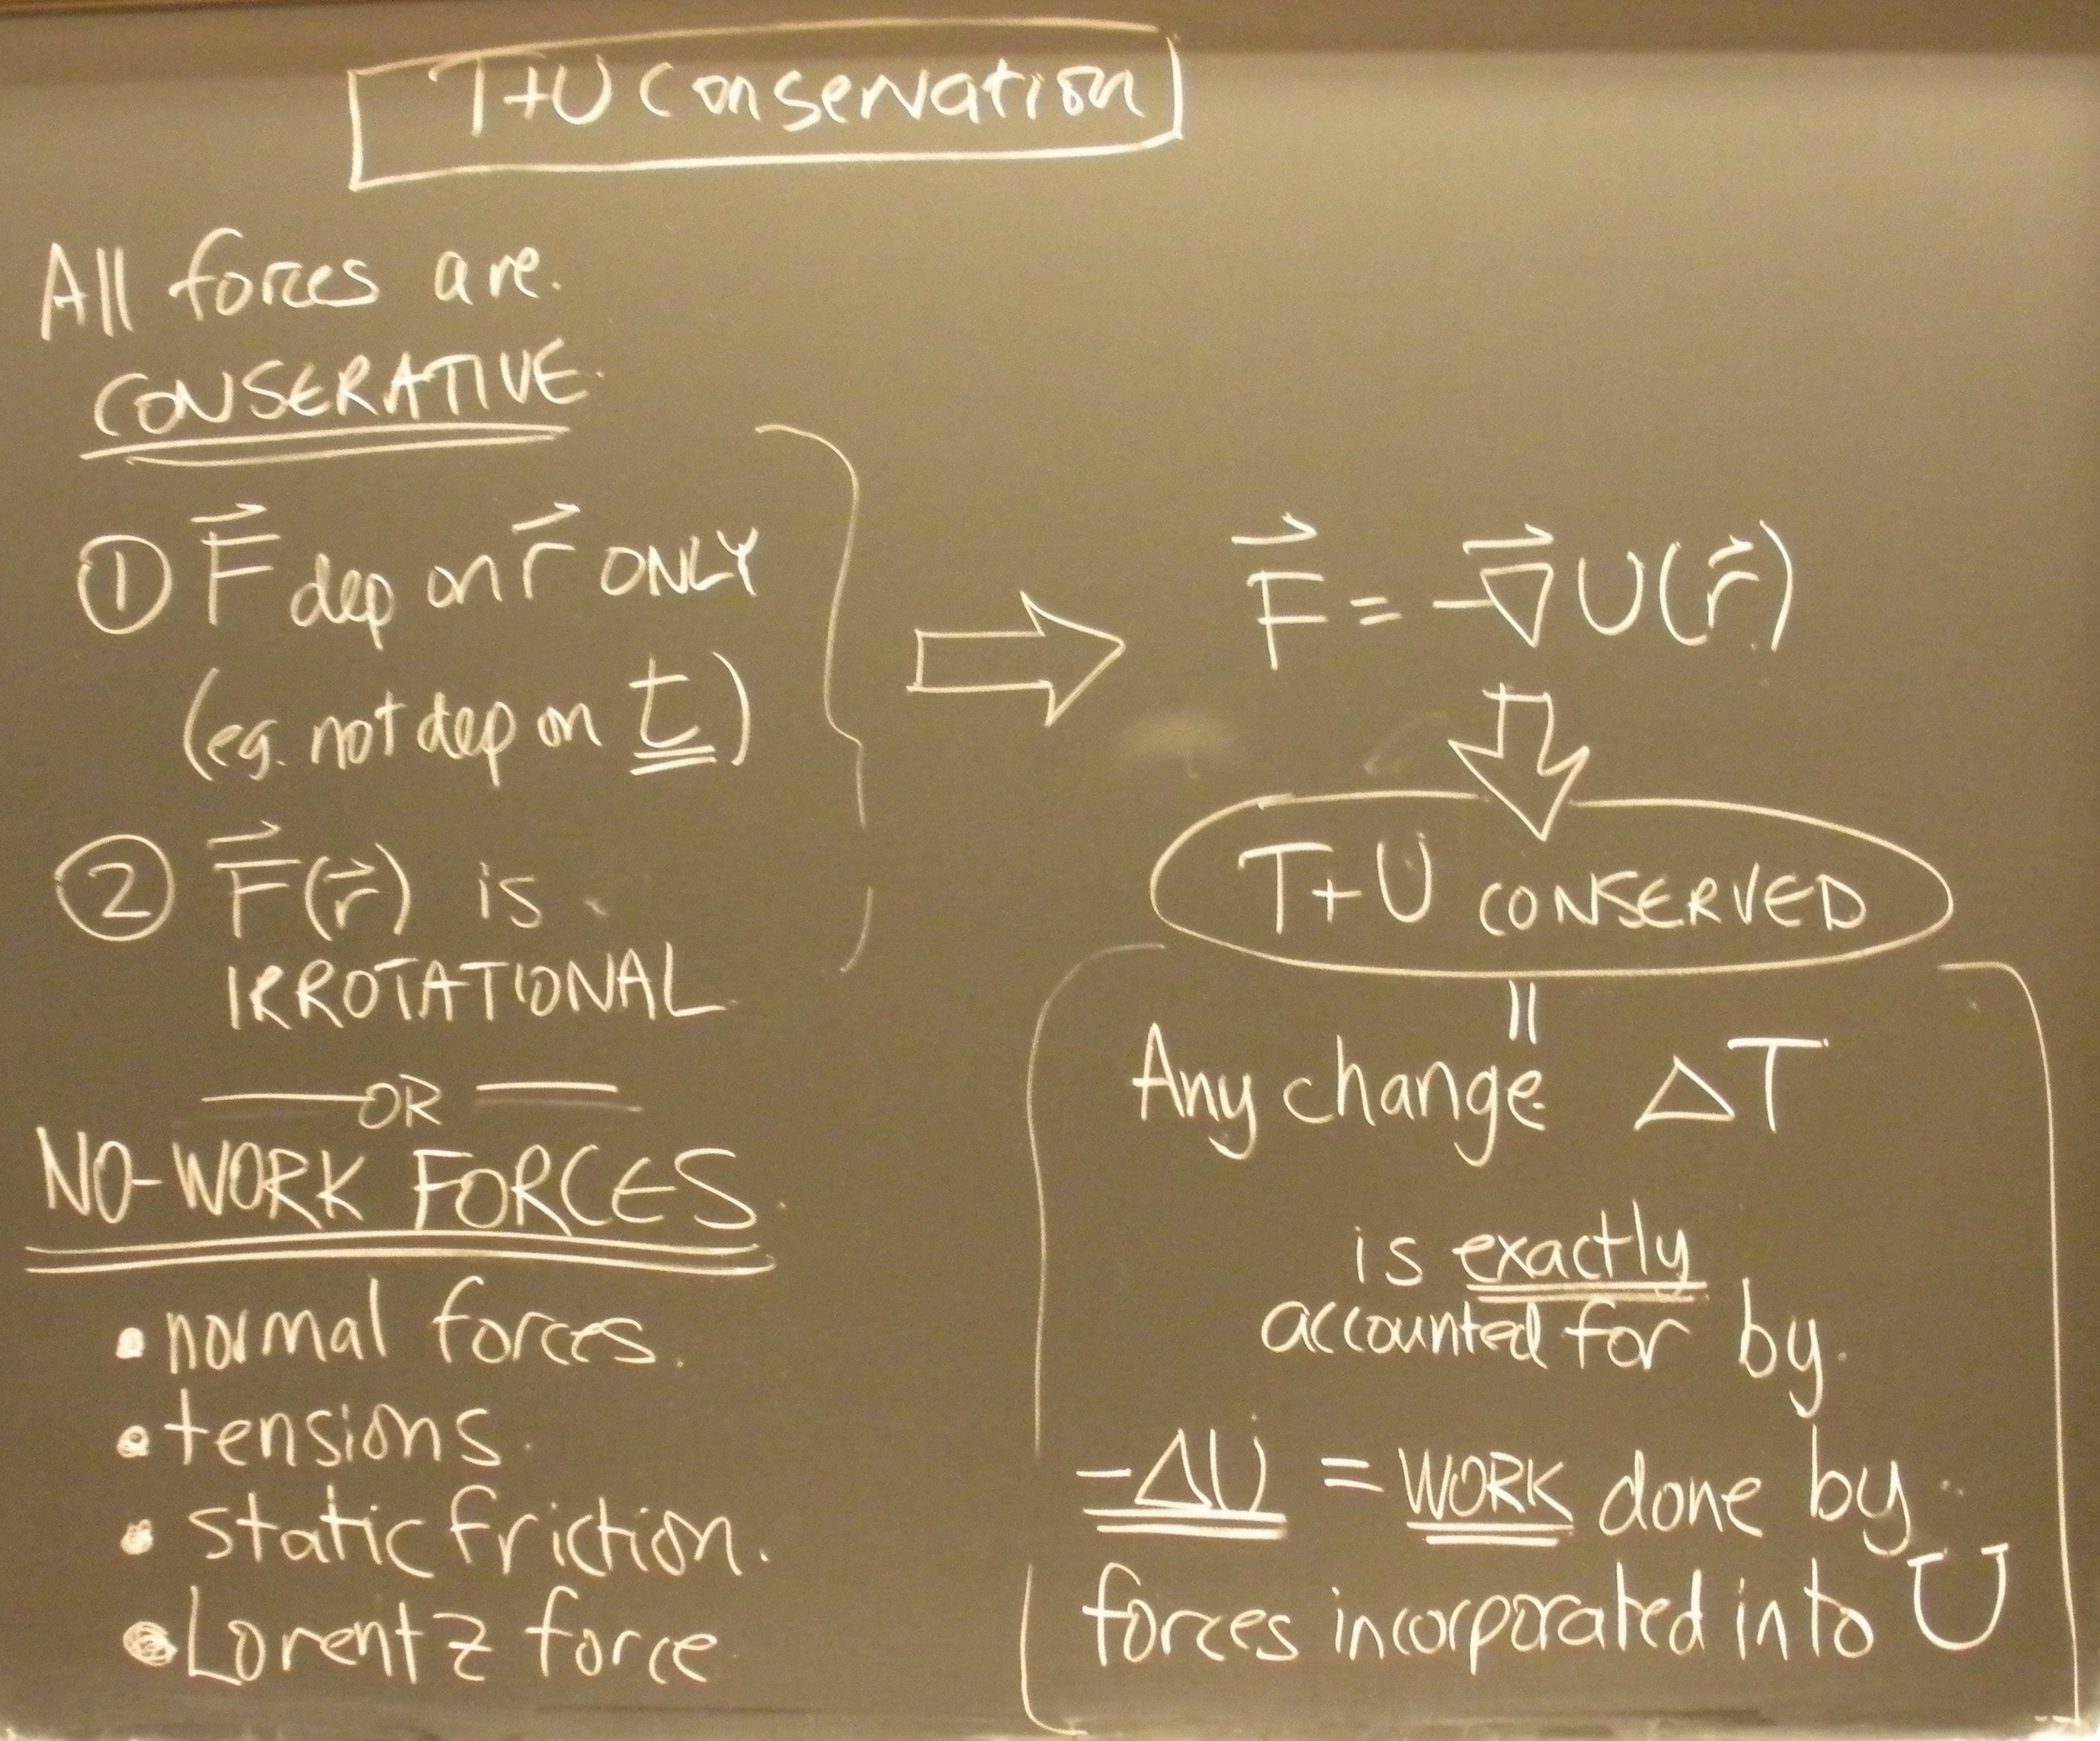 T+U Conservation
All forces are
CONSERATIVE
① F⃗ dep on r⃗ ONLY
(eg. not dep on t)
② F⃗(r⃗) is
IRROTATIONAL
OR
NO-WORK FORCES
• normal forces.
• tensions.
• static friction.
• Lorentz force
F⃗ = -∇⃗U(r⃗)
T+U CONSERVED
=
Any change ΔT
is exactly
accounted for by
-ΔU = WORK done by
forces incorporated into U